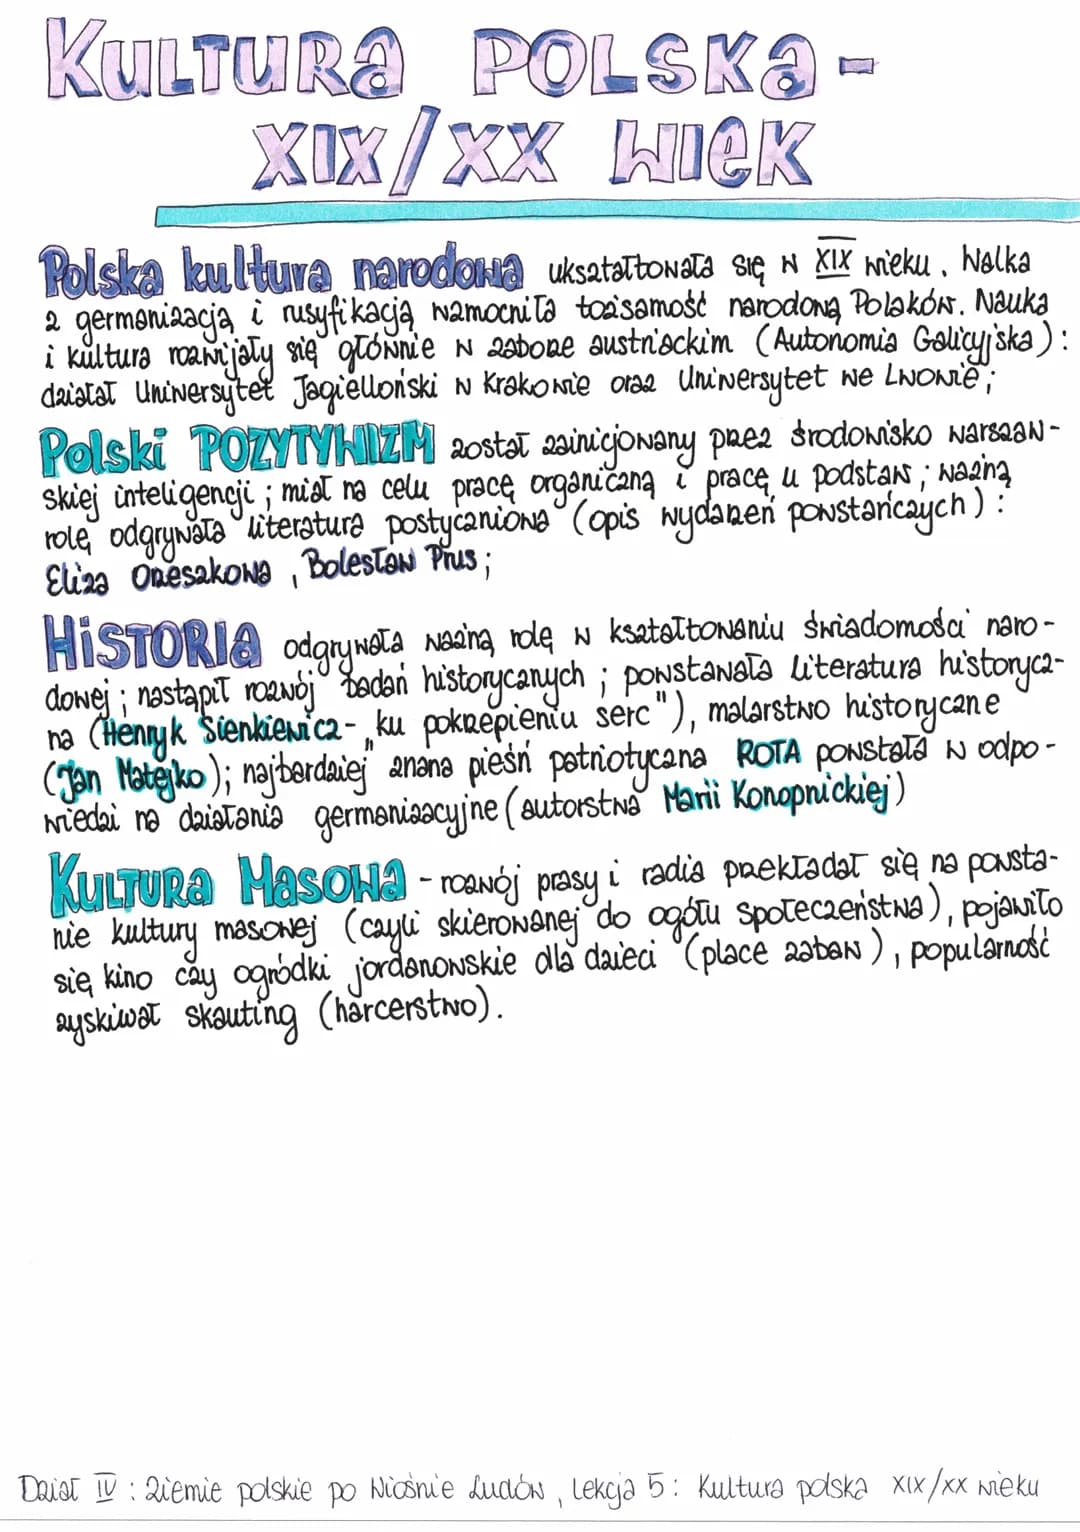 KULTURA POLSKA -
XIX/XX WIEK
Polska kultura narodowa ukształtowała się w XIX wieku. Walka
z germanizacją i rusyfikacją wzmocniła tożsamość narodową Polaków. Nauka
i kultura rozwijały się głównie w zaborze austriackim (Autonomia Galicyjska):
działał Uniwersytet Jagielloński w Krakowie oraz Uniwersytet we Lwowie;
Polski POZYTYWIZM został zainicjowany przez środowisko warszaw-
skiej inteligencji; miał na celu pracę organiczną i pracę u podstaw; ważną
rolę odgrywała literatura postyczniowa (opis wydarzeń powstańczych):
Eliza Orzeszkowa, Bolesław Prus;
HISTORIA odgrywała ważną rolę w kształtowaniu świadomości naro-
dowej; nastąpił rozwój badań historycznych; powstawała literatura historycz-
na (Henryk Sienkiewicz - „ku pokrzepieniu serc"), malarstwo historyczne
(Jan Matejko); najbardziej znana pieśń patriotyczna ROTA powstała w odpo-
wiedzi na działania germanizacyjne (autorstwa Marii Konopnickiej)
KULTURA MASOWA - rozwój prasy i radia przekładał się na powsta-
nie kultury masowej (czyli skierowanej do ogółu społeczeństwa), pojawiło
się kino czy ogródki jordanowskie dla dzieci (place zabaw), popularność
zyskiwał skauting (harcerstwo).
Dział IV: Ziemie polskie po Wiośnie Ludów, Lekcja 5: Kultura polska XIX/XX wieku